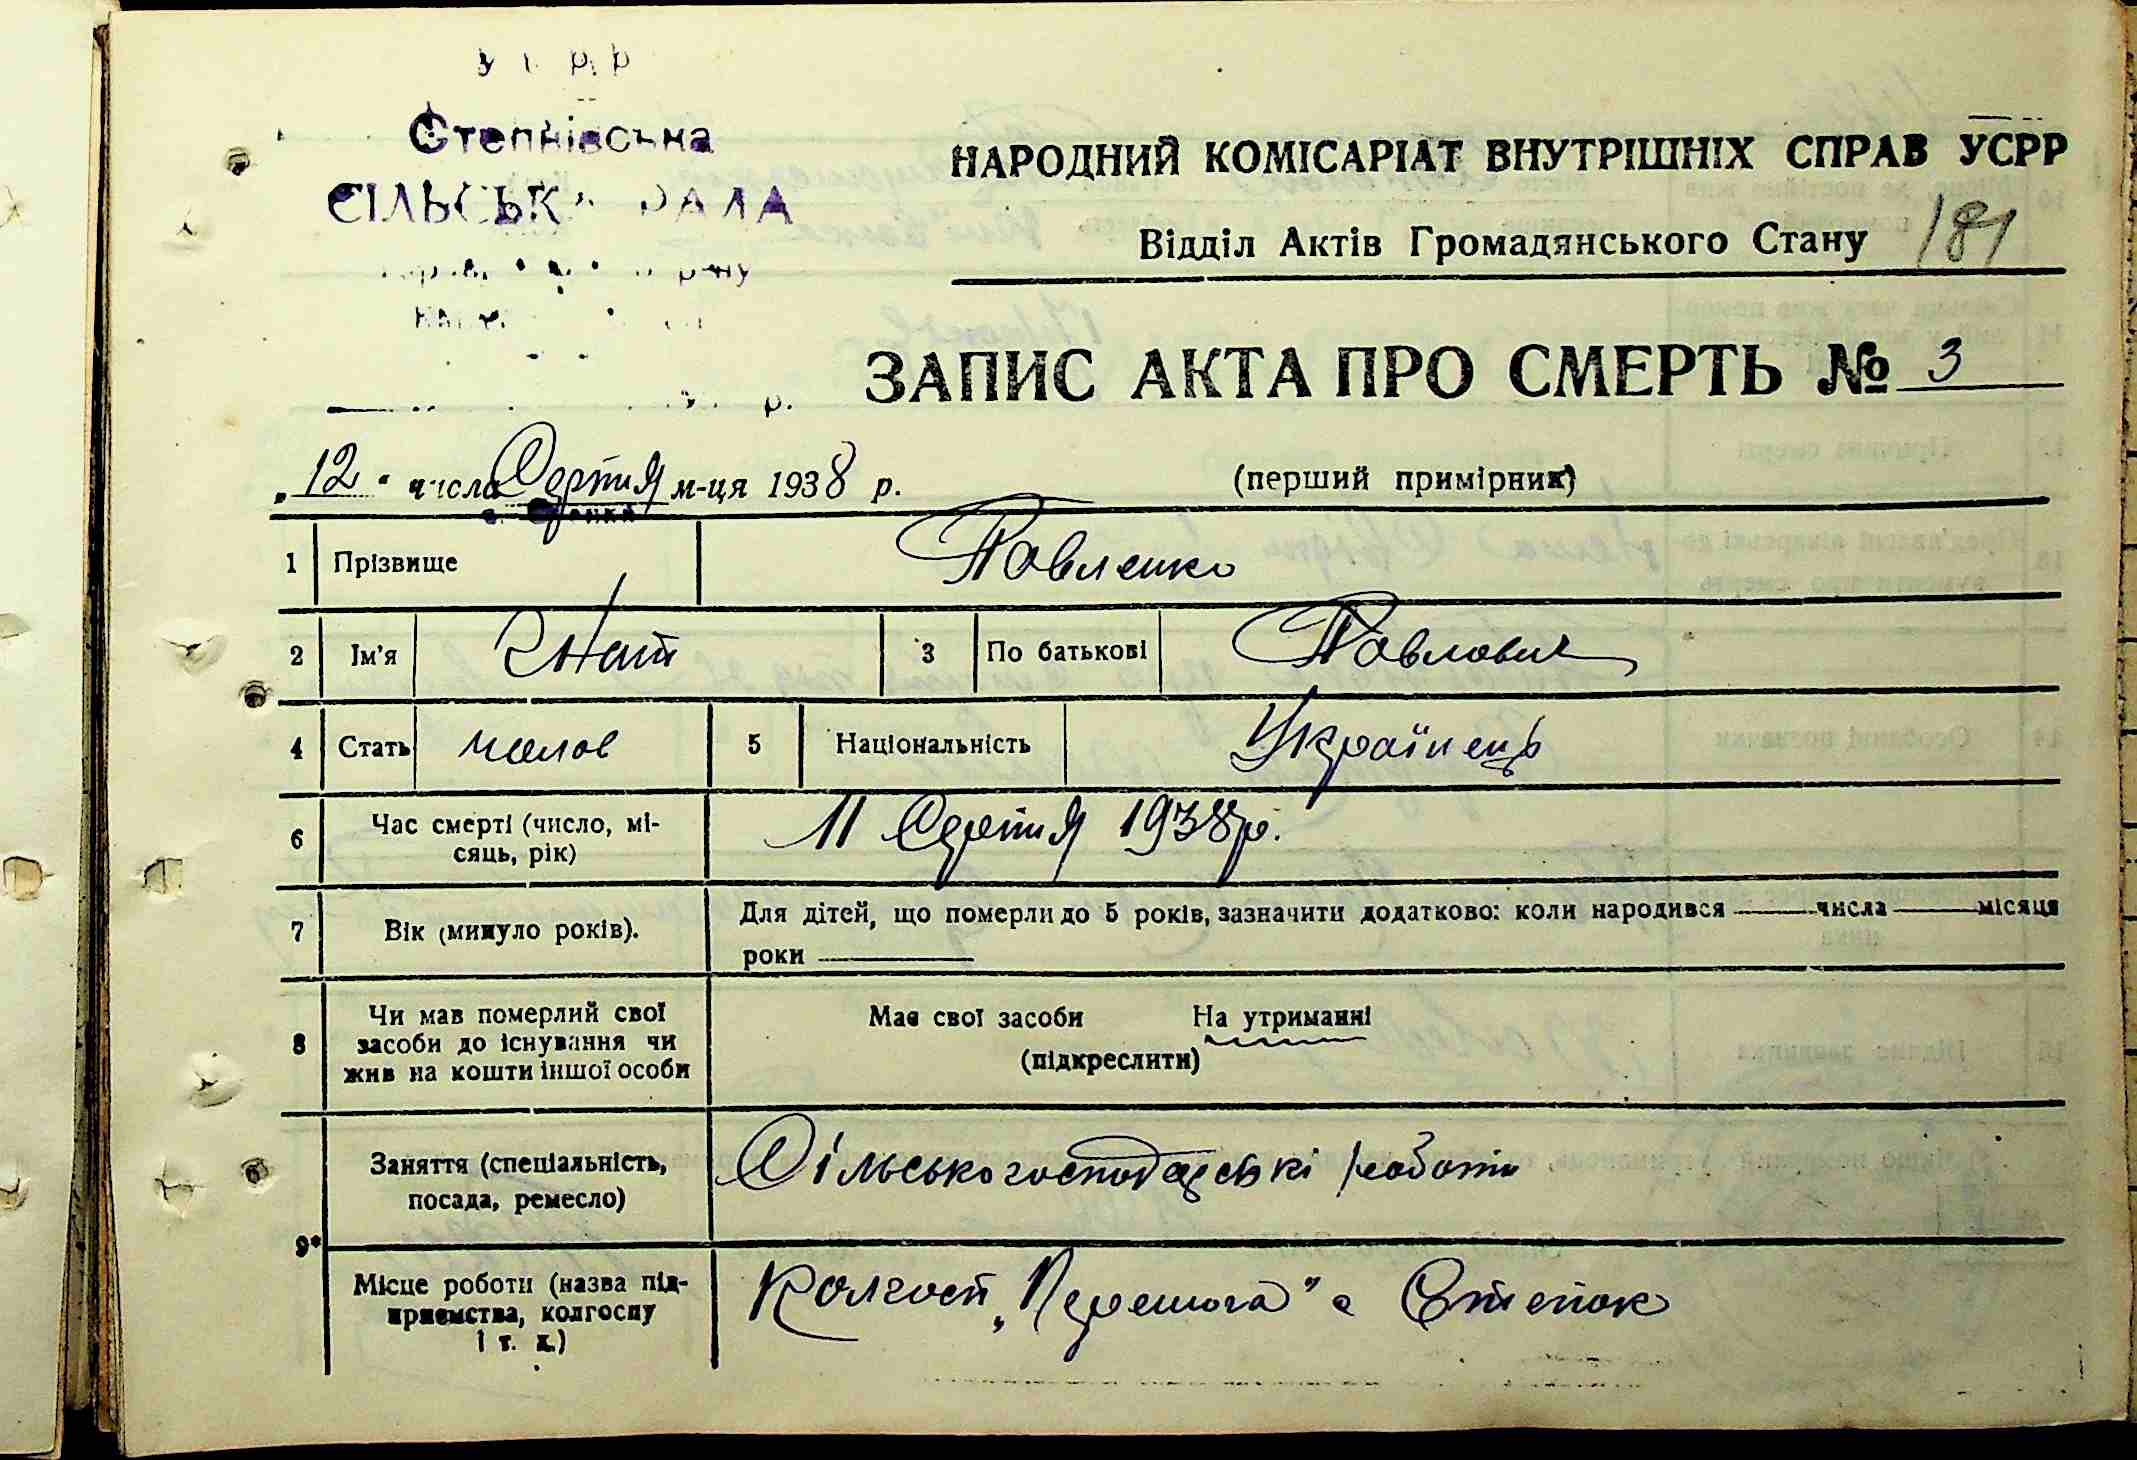 Степнівська
СІЛЬСЬКА РАДА
НАРОДНИЙ КОМІСАРІАТ ВНУТРІШНІХ СПРАВ УСРР
Відділ Актів Громадянського Стану 181
ЗАПИС АКТА ПРО СМЕРТЬ № 3
„12“ числа Серпня м-ця 1938 р.
(перший примірник)
1 Прізвище Павленко
2 Ім'я Гнат 3 По батькові Павлович
4 Стать чолов 5 Національність Українець
6 Час смерті (число, мі-
сяць, рік) 11 Серпня 1938р.
7 Вік (минуло років). Для дітей, що померли до 5 років, зазначити додатково: коли народився числа місяця
роки
8 Чи мав померлий свої
засоби до існування чи
жив на кошти іншої особи
Має свої засоби На утриманні
(підкреслити)
9*
Заняття (спеціальність,
посада, ремесло)
Сільськогосподарські роботи
Місце роботи (назва під-
приємства, колгоспу
і т. д.)
Колгосп „Перемога" с Степок